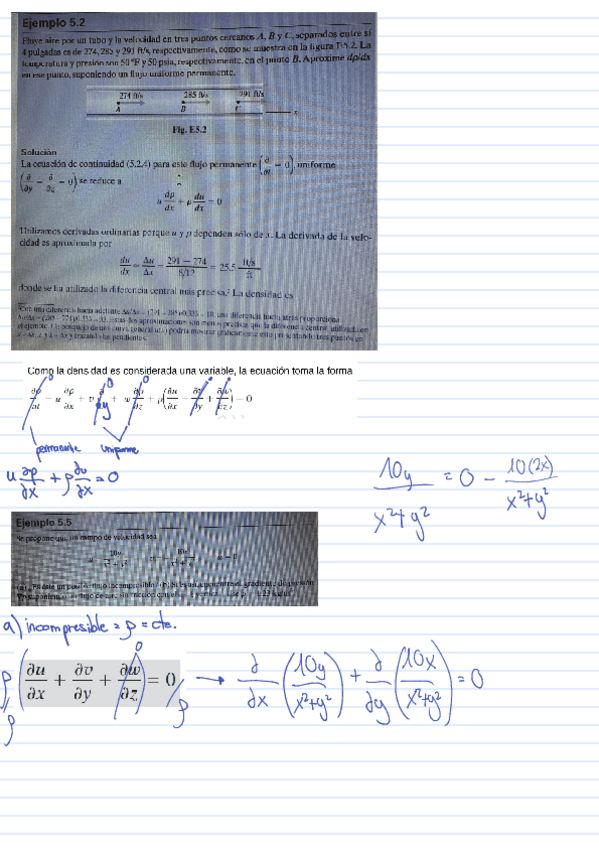 Ejemplo 5.2
Fluye aire por un tubo y la velocidad en tres puntos cercanos A, B y C, separados entre sí
4 pulgadas es de 274, 285 y 291 ft/s, respectivamente, como se muestra en la figura E5.2. La
temperatura y presión son 50 °F y 50 psia, respectivamente, en el punto B. Aproxime dρ/dx
en ese punto, suponiendo un flujo uniforme permanente.
274 ft/s 285 ft/s 291 ft/s
A B C x
Fig. E5.2
Solución
La ecuación de continuidad (5.2.4) para este flujo permanente (∂/∂t = 0), uniforme
(∂/∂y = ∂/∂z = 0) se reduce a
u dρ/dx + ρ du/dx = 0
Utilizamos derivadas ordinarias porque u y ρ dependen sólo de x. La derivada de la velo-
cidad es aproximada por
du/dx ≅ Δu/Δx = 291 − 274 / 8/12 = 25.5 ft/s / ft
donde se ha utilizado la diferencia central más precisa.² La densidad es
Como la densidad es considerada una variable, la ecuación toma la forma
∂ρ/∂t + u ∂ρ/∂x + v ∂ρ/∂y + w ∂ρ/∂z + ρ(∂u/∂x + ∂v/∂y + ∂w/∂z) = 0
permanente uniforme
u ∂ρ/∂x + ρ ∂u/∂x = 0
10y / x²+y² = 0 − 10(2x) / x²+y²
Ejemplo 5.5
Se propone que un campo de velocidad sea
a) incompresible = ρ = cte.
ρ (∂u/∂x + ∂v/∂y + ∂w/∂z) = 0/ρ → ∂/∂x (10y / x²+y²) + ∂/∂y (10x / x²+y²) = 0
ρ